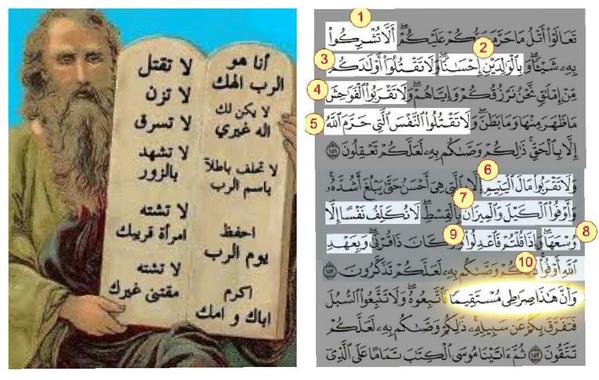 أنا هو
الرب الهك
لا يكن لك
اله غيري
لا تحلف باطلاً
باسم الرب
احفظ
يوم الرب
اكرم
اباك و امك
لا تقتل
لا تزن
لا تسرق
لا تشهد
بالزور
لا تشته
امرأة قريبك
لا تشته
مقتنى غيرك
1
تَعَالَوْا۟ أَتْلُ مَا حَرَّمَ رَبُّكُمْ عَلَيْكُمْ أَلَّا تُشْرِكُوا۟
2
بِهِۦ شَيْـًٔا وَبِٱلْوَٰلِدَيْنِ إِحْسَٰنًا وَلَا تَقْتُلُوٓا۟ أَوْلَٰدَكُم
3
مِّنْ إِمْلَٰقٍ نَّحْنُ نَرْزُقُكُمْ وَإِيَّاهُمْ وَلَا تَقْرَبُوا۟ ٱلْفَوَٰحِشَ
4
مَا ظَهَرَ مِنْهَا وَمَا بَطَنَ وَلَا تَقْتُلُوا۟ ٱلنَّفْسَ ٱلَّتِى حَرَّمَ ٱللَّهُ
5
إِلَّا بِٱلْحَقِّ ذَٰلِكُمْ وَصَّىٰكُم بِهِۦ لَعَلَّكُمْ تَعْقِلُونَ ١٥١
6
وَلَا تَقْرَبُوا۟ مَالَ ٱلْيَتِيمِ إِلَّا بِٱلَّتِى هِىَ أَحْسَنُ حَتَّىٰ يَبْلُغَ أَشُدَّهُۥ
7
وَأَوْفُوا۟ ٱلْكَيْلَ وَٱلْمِيزَانَ بِٱلْقِسْطِ لَا نُكَلِّفُ نَفْسًا إِلَّا
8
وُسْعَهَا وَإِذَا قُلْتُمْ فَٱعْدِلُوا۟ وَلَوْ كَانَ ذَا قُرْبَىٰ وَبِعَهْدِ
9
10
ٱللَّهِ أَوْفُوا۟ ذَٰلِكُمْ وَصَّىٰكُم بِهِۦ لَعَلَّكُمْ تَذَكَّرُونَ ١٥٢
وَأَنَّ هَٰذَا صِرَٰطِى مُسْتَقِيمًا فَٱتَّبِعُوهُ وَلَا تَتَّبِعُوا۟ ٱلسُّبُلَ
فَتَفَرَّقَ بِكُمْ عَن سَبِيلِهِۦ ذَٰلِكُمْ وَصَّىٰكُم بِهِۦ لَعَلَّكُمْ
تَتَّقُونَ ١٥٣ ثُمَّ ءَاتَيْنَا مُوسَى ٱلْكِتَٰبَ تَمَامًا عَلَى ٱلَّذِىٓ